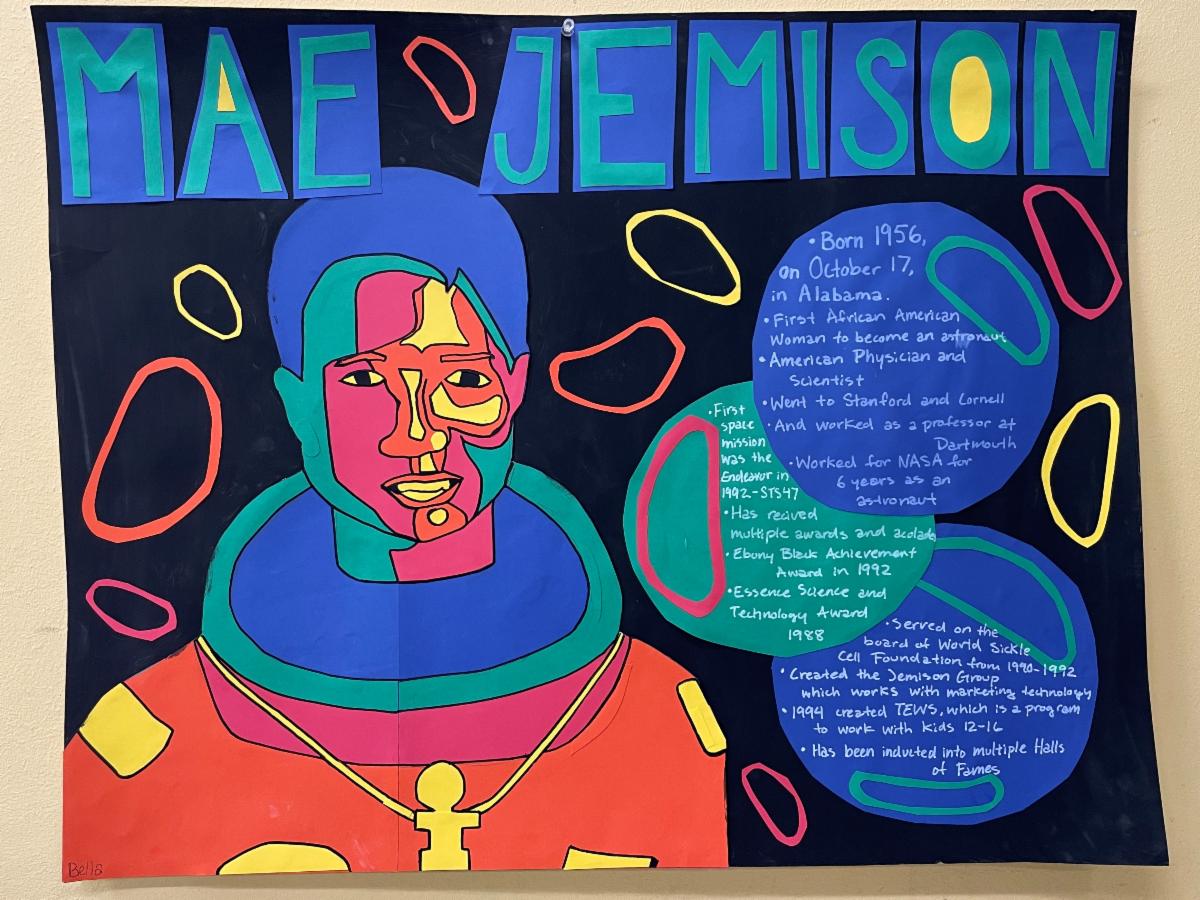 MAE JEMISON
• Born 1956,
on October 17,
in Alabama.
• First African American
Woman to become an astronaut
• American Physician and
Scientist
• Went to Stanford and Cornell
• And worked as a professor at
Dartmouth
• Worked for NASA for
6 years as an
astronaut
• First
space
mission
was the
Endeavor in
1992-STS47
• Has recived
multiple awards and acolade
• Ebony Black Achievement
Award in 1992
• Essence Science and
Technology Award
1988
• Served on the
board of World Sickle
Cell Foundation from 1990-1992
• Created the Jemison Group
which works with marketing technology
• 1994 created TEWS, which is a program
to work with kids 12-16
• Has been inducted into multiple Halls
of Fames
Bella